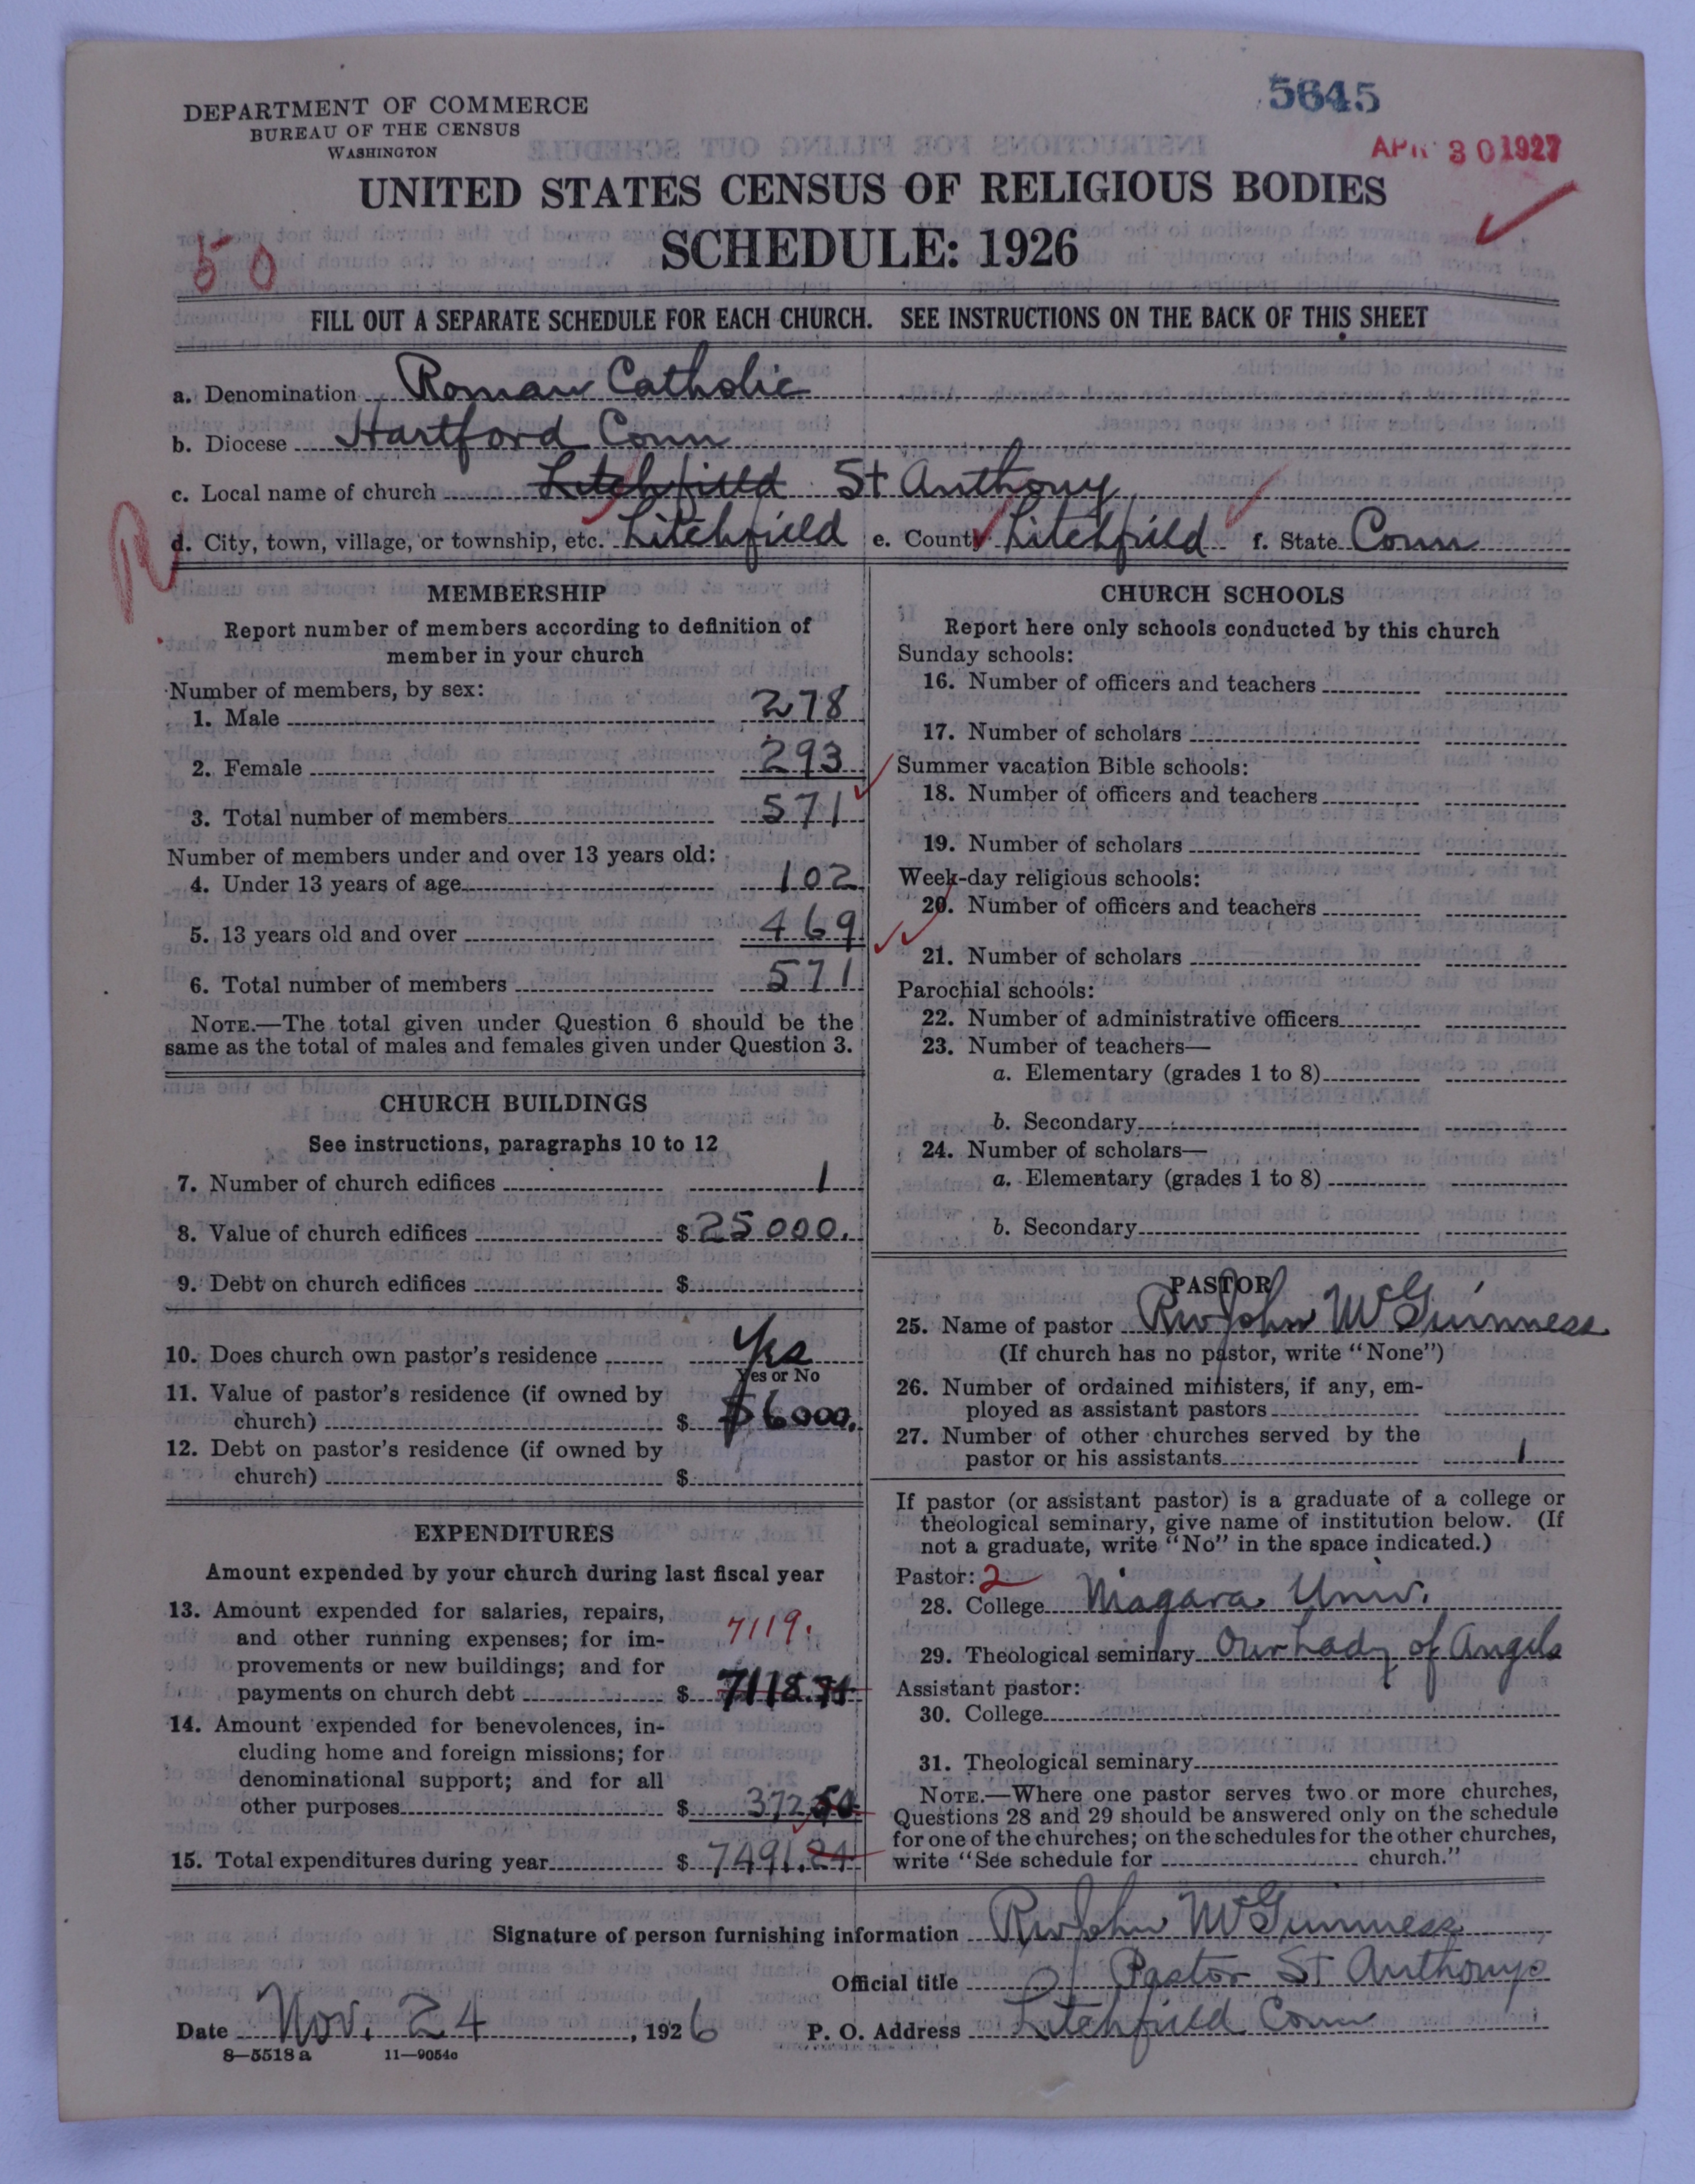 5645
DEPARTMENT OF COMMERCE
BUREAU OF THE CENSUS
WASHINGTON
APR 30 1927
UNITED STATES CENSUS OF RELIGIOUS BODIES
SCHEDULE: 1926
50
FILL OUT A SEPARATE SCHEDULE FOR EACH CHURCH. SEE INSTRUCTIONS ON THE BACK OF THIS SHEET
a. Denomination Roman Catholic
b. Diocese Hartford Conn
c. Local name of church Litchfield St Anthony
d. City, town, village, or township, etc. Litchfield e. County Litchfield f. State Conn
MEMBERSHIP
Report number of members according to definition of
member in your church
Number of members, by sex:
1. Male 278
2. Female 293
3. Total number of members 571
Number of members under and over 13 years old:
4. Under 13 years of age 102
5. 13 years old and over 469
6. Total number of members 571
NOTE.—The total given under Question 6 should be the
same as the total of males and females given under Question 3.
CHURCH BUILDINGS
See instructions, paragraphs 10 to 12
7. Number of church edifices 1
8. Value of church edifices $ 25000.
9. Debt on church edifices $
10. Does church own pastor's residence Yes
Yes or No
11. Value of pastor's residence (if owned by
church) $ $6000.
12. Debt on pastor's residence (if owned by
church) $
EXPENDITURES
Amount expended by your church during last fiscal year
13. Amount expended for salaries, repairs,
and other running expenses; for im- 7119.
provements or new buildings; and for
payments on church debt $ 7118.74
14. Amount expended for benevolences, in-
cluding home and foreign missions; for
denominational support; and for all
other purposes $ 372.50
15. Total expenditures during year $ 7491.24
CHURCH SCHOOLS
Report here only schools conducted by this church
Sunday schools:
16. Number of officers and teachers
17. Number of scholars
Summer vacation Bible schools:
18. Number of officers and teachers
19. Number of scholars
Week-day religious schools:
20. Number of officers and teachers
21. Number of scholars
Parochial schools:
22. Number of administrative officers
23. Number of teachers—
a. Elementary (grades 1 to 8)
b. Secondary
24. Number of scholars—
a. Elementary (grades 1 to 8)
b. Secondary
PASTOR
25. Name of pastor Rev John McGuinness
(If church has no pastor, write "None")
26. Number of ordained ministers, if any, em-
ployed as assistant pastors
27. Number of other churches served by the
pastor or his assistants 1
If pastor (or assistant pastor) is a graduate of a college or
theological seminary, give name of institution below. (If
not a graduate, write "No" in the space indicated.)
Pastor: 2
28. College Niagara Univ.
29. Theological seminary Our Lady of Angels
Assistant pastor:
30. College
31. Theological seminary
NOTE.—Where one pastor serves two or more churches,
Questions 28 and 29 should be answered only on the schedule
for one of the churches; on the schedules for the other churches,
write "See schedule for church."
Signature of person furnishing information Rev John McGuinness
Official title Pastor St Anthonys
Date Nov. 24, 1926 P. O. Address Litchfield Conn
8—5518 a 11—9054c